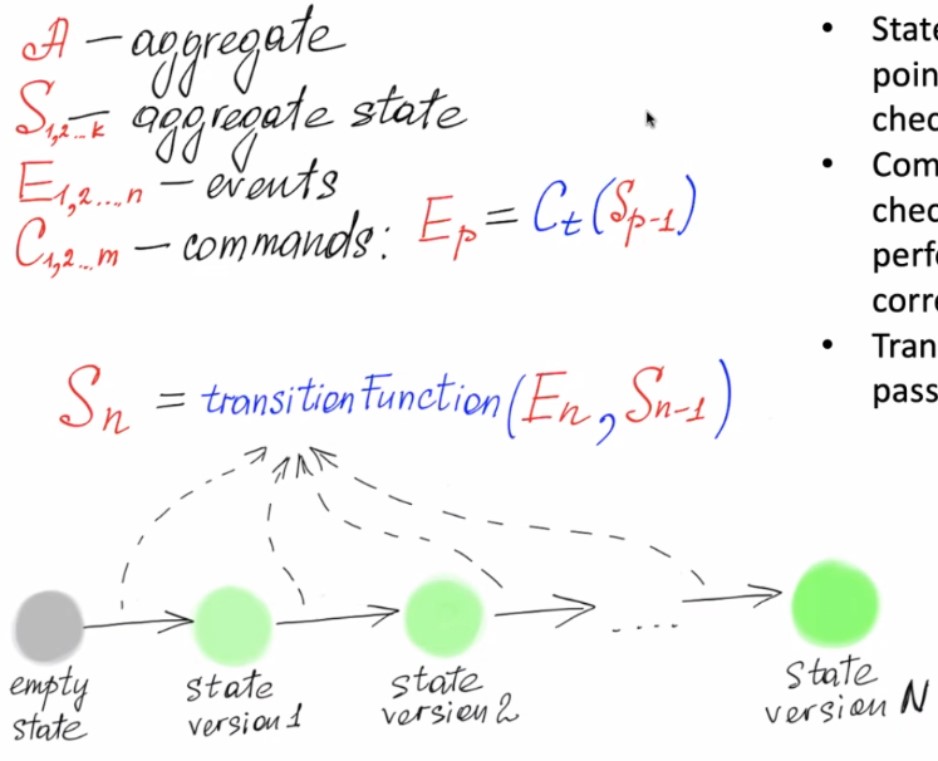 A – aggregate
S1,2...k – aggregate state
E1,2...,n – events
C1,2...m – commands: Ep = Ct(Sp-1)
Sn = transitionFunction(En, Sn-1)
empty
state
state
version 1
state
version 2
....
state
version N
• State
poin
chec
• Com
chec
perfo
corre
• Tran
pass